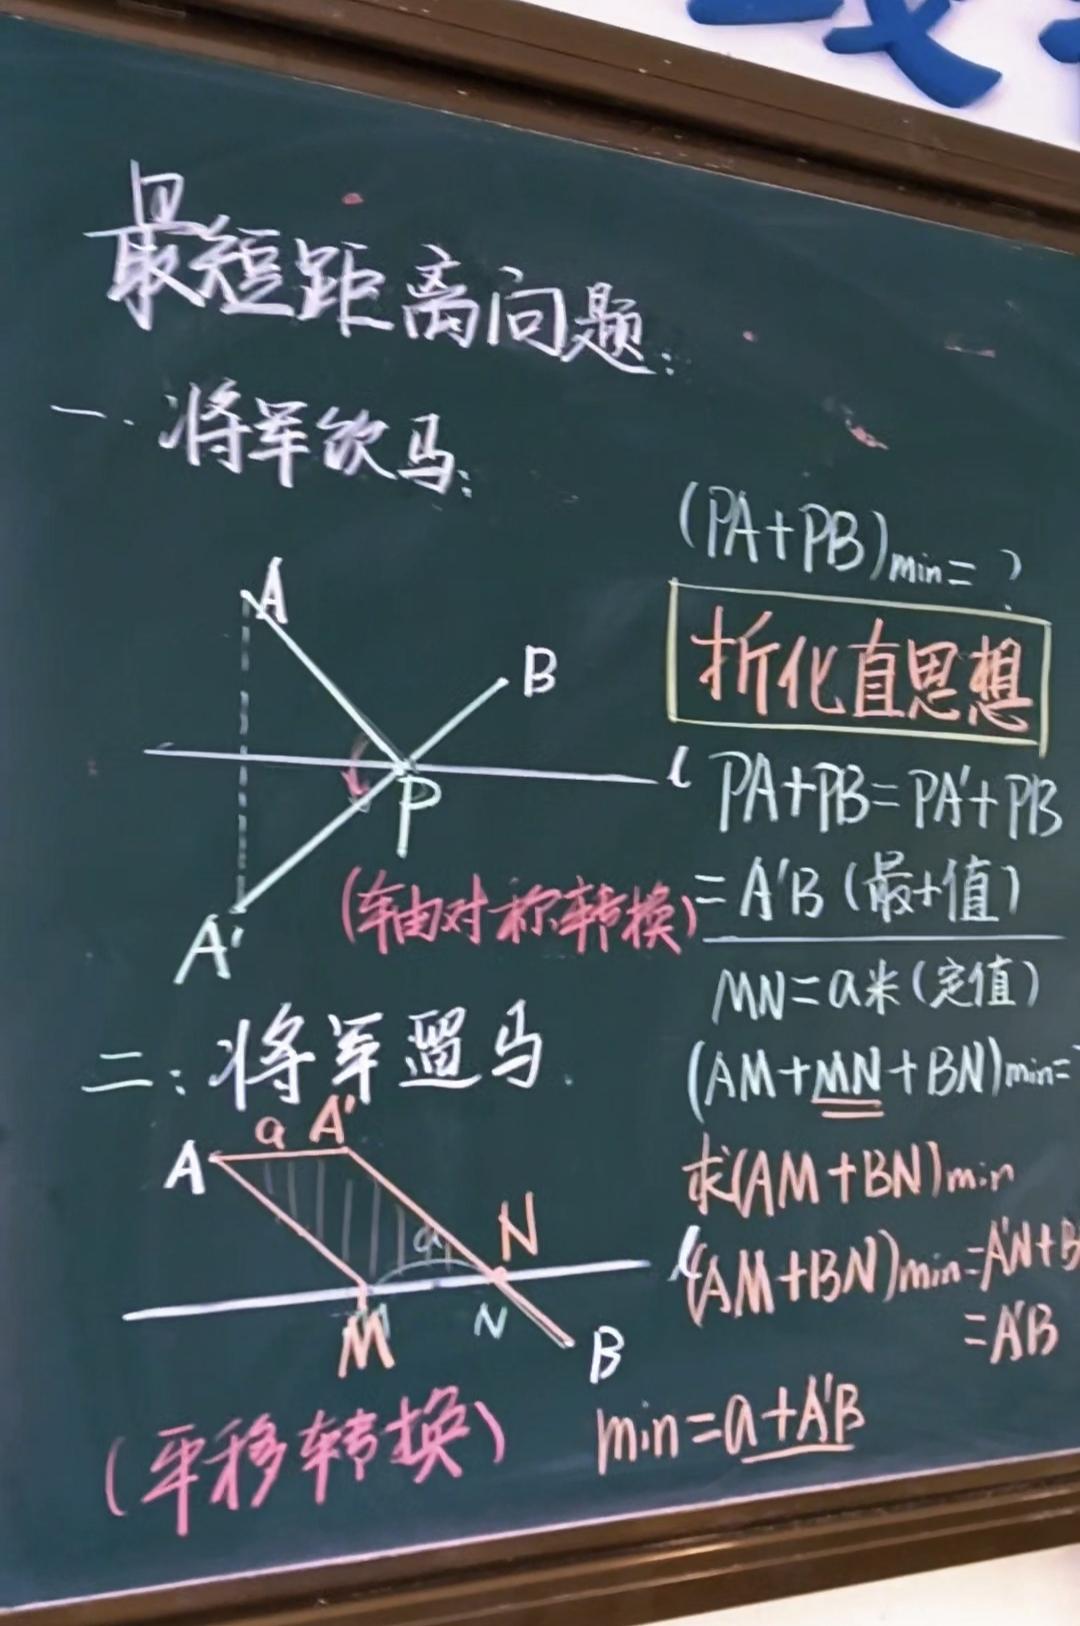 最短距离问题:
一.将军饮马:
A
B
l
P
A'
(轴对称转换)
(PA+PB)min=?
折化直思想
PA+PB=PA'+PB
=A'B(最小值)
二:将军遛马.
a
A'
A
a
N
l
M
N
B
(平移转换)
MN=a米(定值)
(AM+MN+BN)min=
求(AM+BN)min
(AM+BN)min=A'N+B
=A'B
min=a+A'B